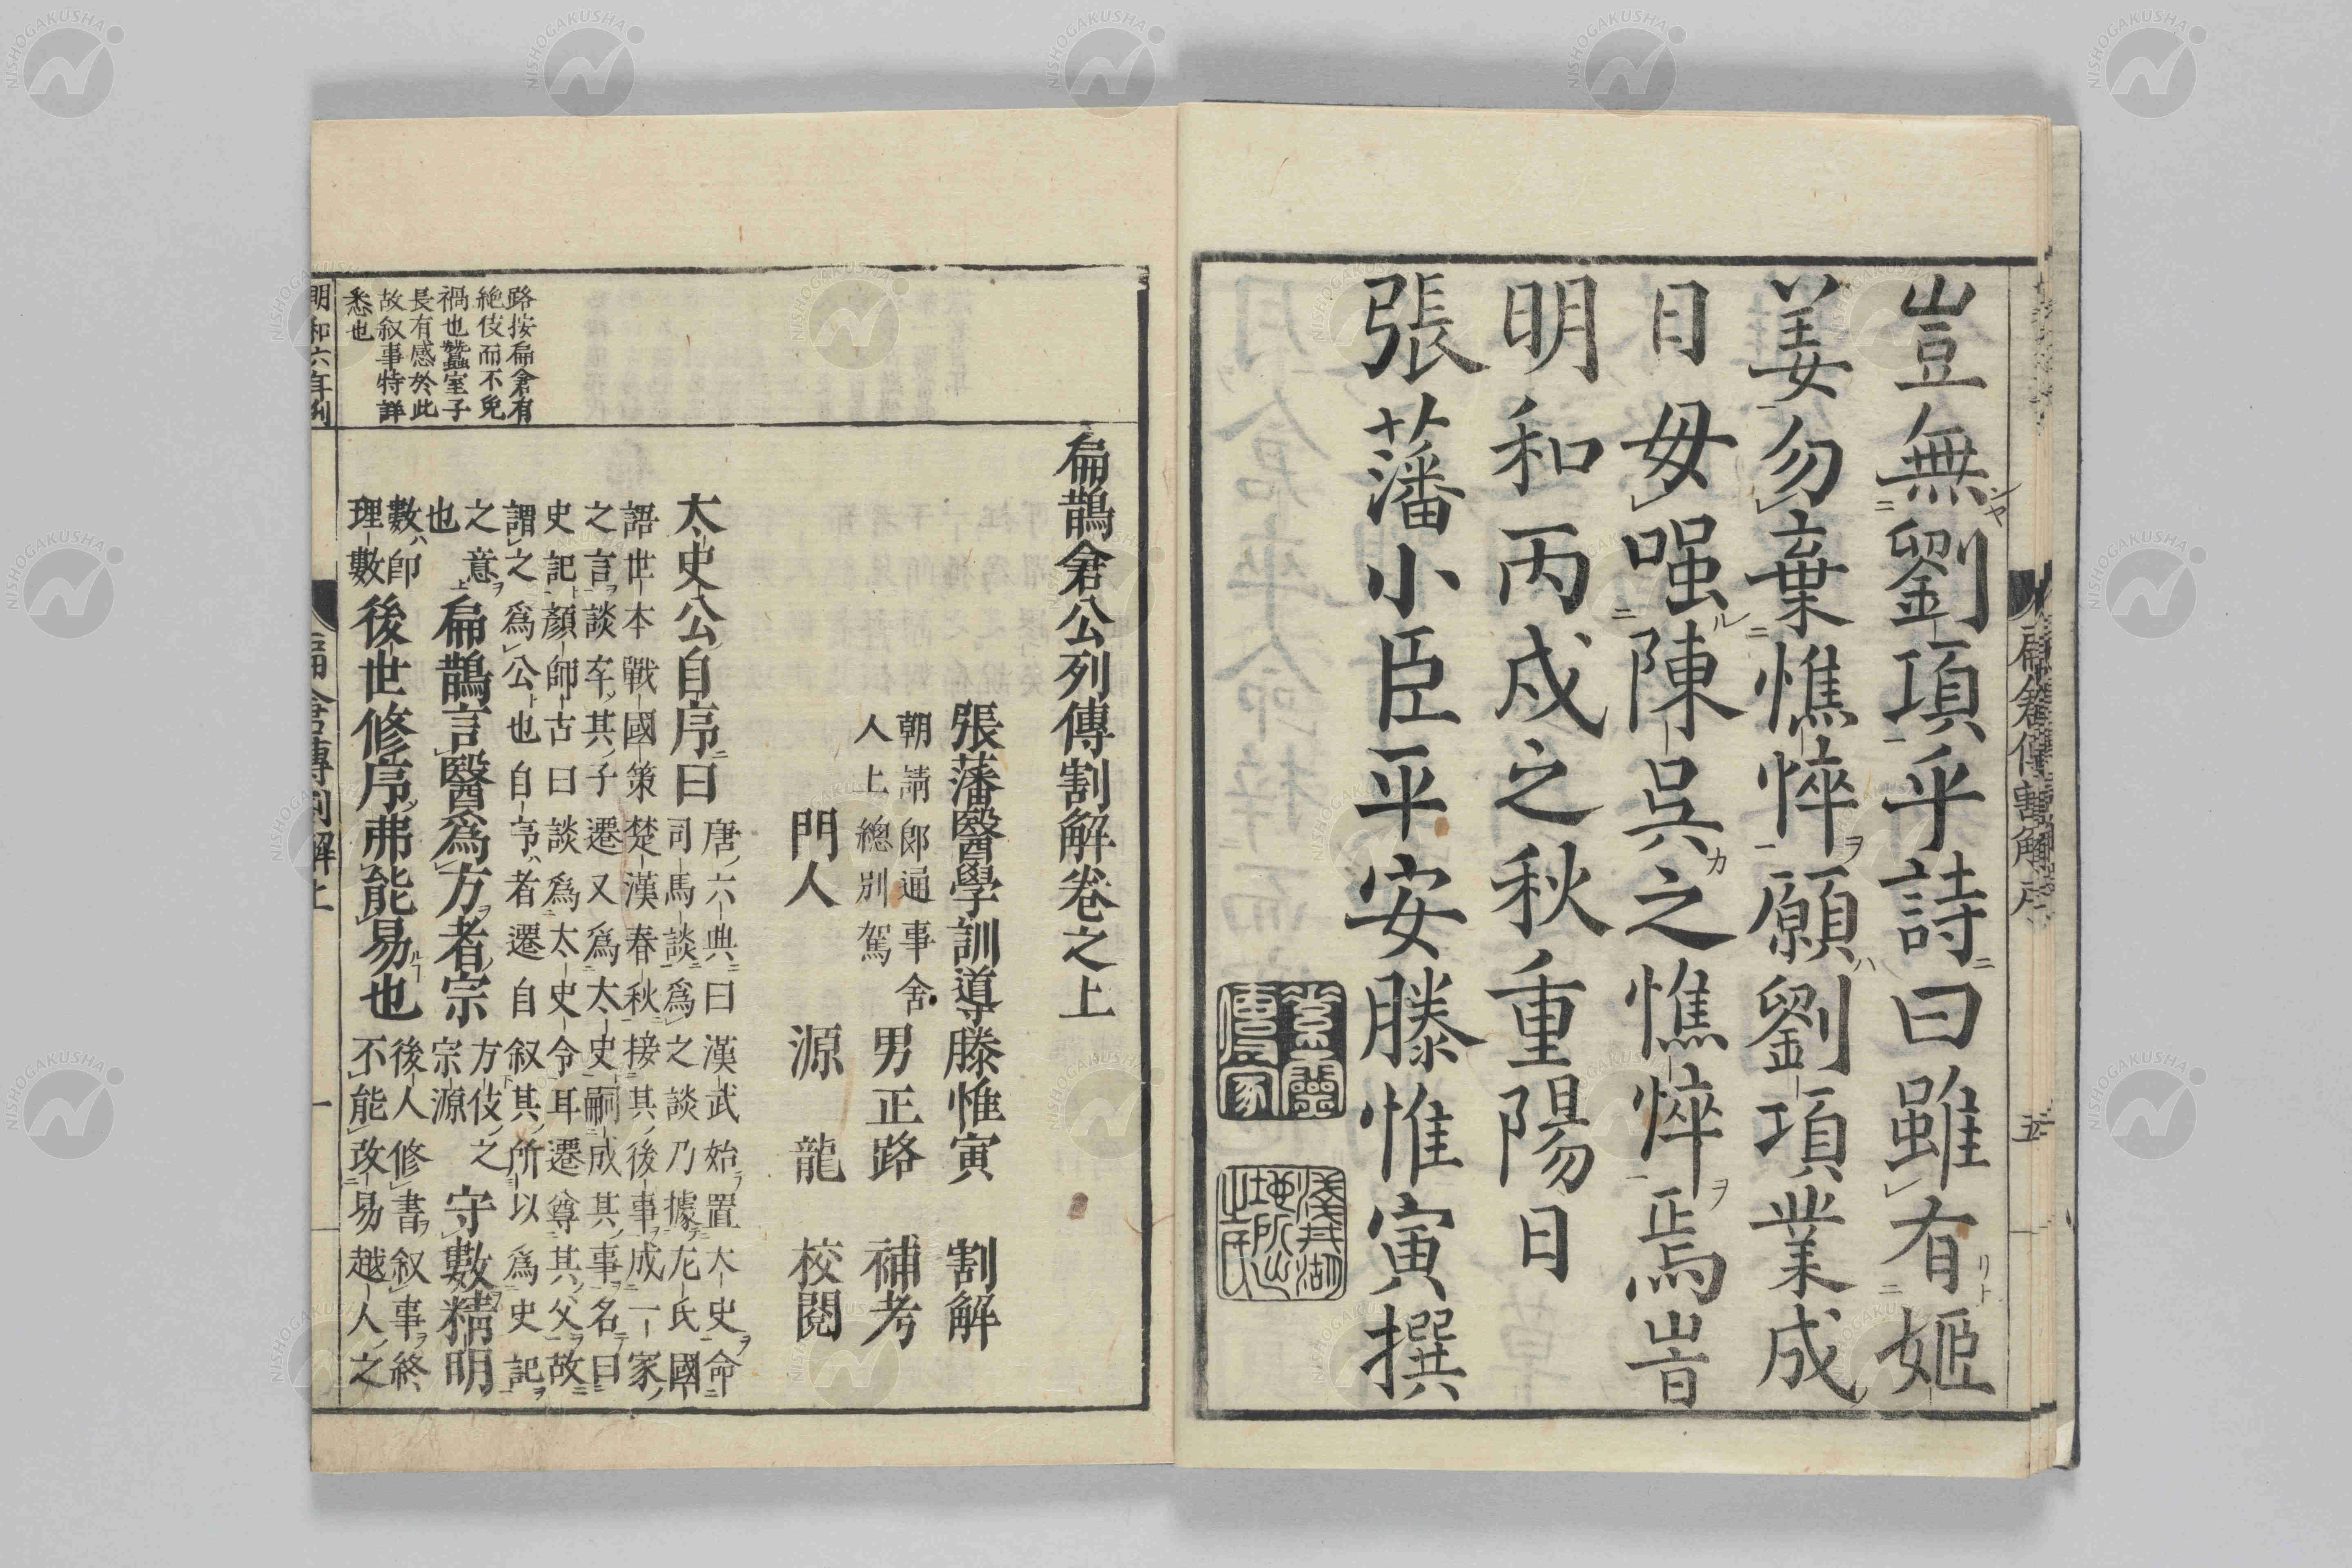 豈無劉項乎詩曰雖有姬
姜勿棄憔悴願劉項業成
日毋强陳吳之憔悴焉旹
明和丙戌之秋重陽日
張藩小臣平安滕惟寅撰
扁倉傳割解序
五
扁鵲倉公列傳割解卷之上
張藩醫學訓導滕惟寅 割解
朝請郎通事舍
人上總別駕
男正路 補考
門人 源龍 校閱
太史公自序曰
唐六典曰漢武始置太史命
司馬談爲之談乃據左氏國
語世本戰國策楚漢春秋接其後事成一家
之言談卒其子遷又爲太史嗣成其事名曰
史記顏師古曰談爲太史令耳遷尊其父故
謂之爲公也自序者遷自叙其所以爲史記
之意
也
扁鵲言醫爲方者宗
方伎之
宗源
守數精明
數卽
理數
後世修序弗能易也
後人修書叙事終
不能改易越人之
路按扁倉有
絶伎而不免
禍也蠶室子
長有感於此
故叙事特詳
悉也
明和六年刻
扁倉傳割解上
一
NISHOGAKUSHA